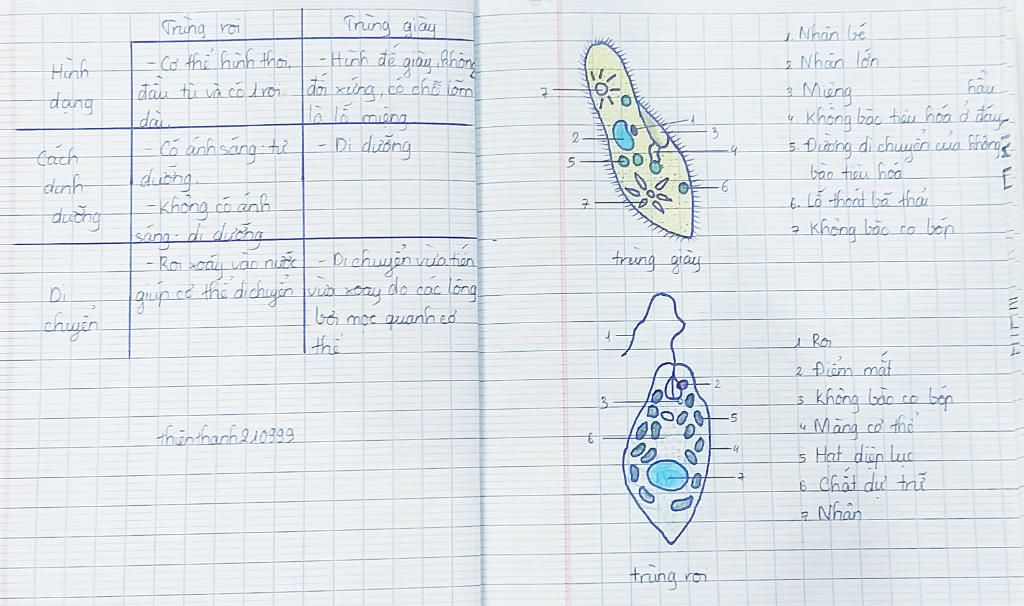 Trùng roi
Trùng giày
Hình
dạng
- Cơ thể hình thoi,
đầu tù và có 1 roi
dài.
- Hình đế giày, không
đối xứng, có chỗ lõm
là lỗ miệng
Cách
dinh
dưỡng
- Có ánh sáng: tự
dưỡng.
- Không có ánh
sáng: dị dưỡng
- Dị dưỡng
Di
chuyển
- Roi xoáy vào nước
giúp cơ thể di chuyển
- Di chuyển vừa tiến
vừa xoay do các lông
bơi mọc quanh cơ
thể
thienthanh210999
7
1
2
3
4
5
6
7
trùng giày
1. Nhân bé
2 Nhân lớn
3 Miệng
hầu
4. Không bào tiêu hóa ở đáy
5. Đường di chuyển của không
bào tiêu hóa
6. Lỗ thoát bã thải
7 Không bào co bóp
1
2
3
5
6
4
7
trùng roi
1 Roi
2 Điểm mắt
3 Không bào co bóp
4 Màng cơ thể
5 Hạt diệp lục
6 Chất dự trữ
7 Nhân